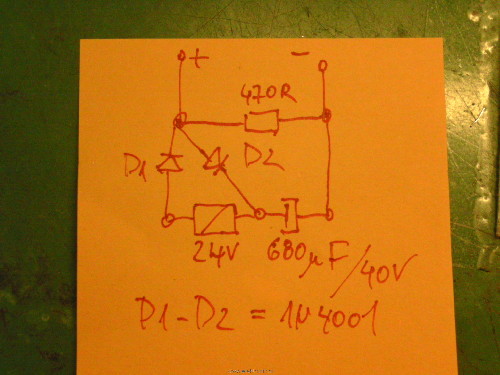 + −
470R
D1 D2
24V 680µF/40V
D1-D2 = 1N4001